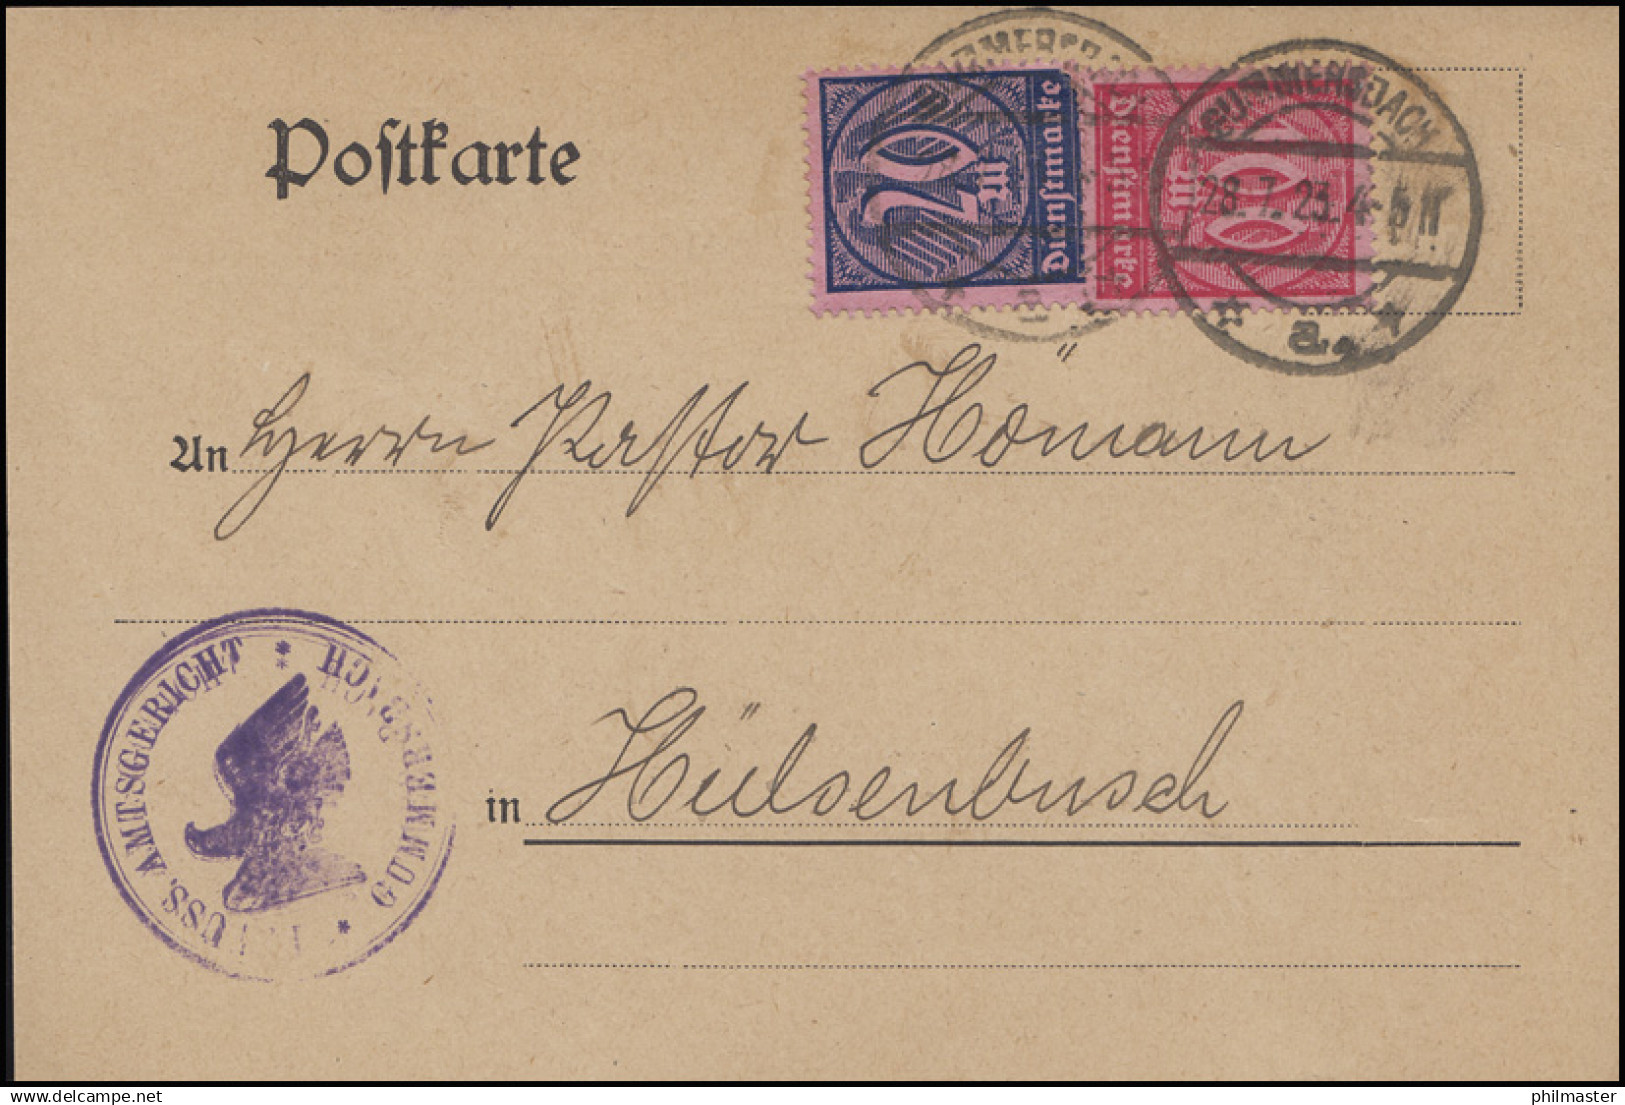 Postkarte
20 M Dienstmarke
Dienstmarke M
GUMMERSBACH
28.7.23. 4-5 N
* a. *
An Herrn Pastor Hömann
PREUSS. AMTSGERICHT * GUMMERSBACH *
in Hülsenbusch
philmaster